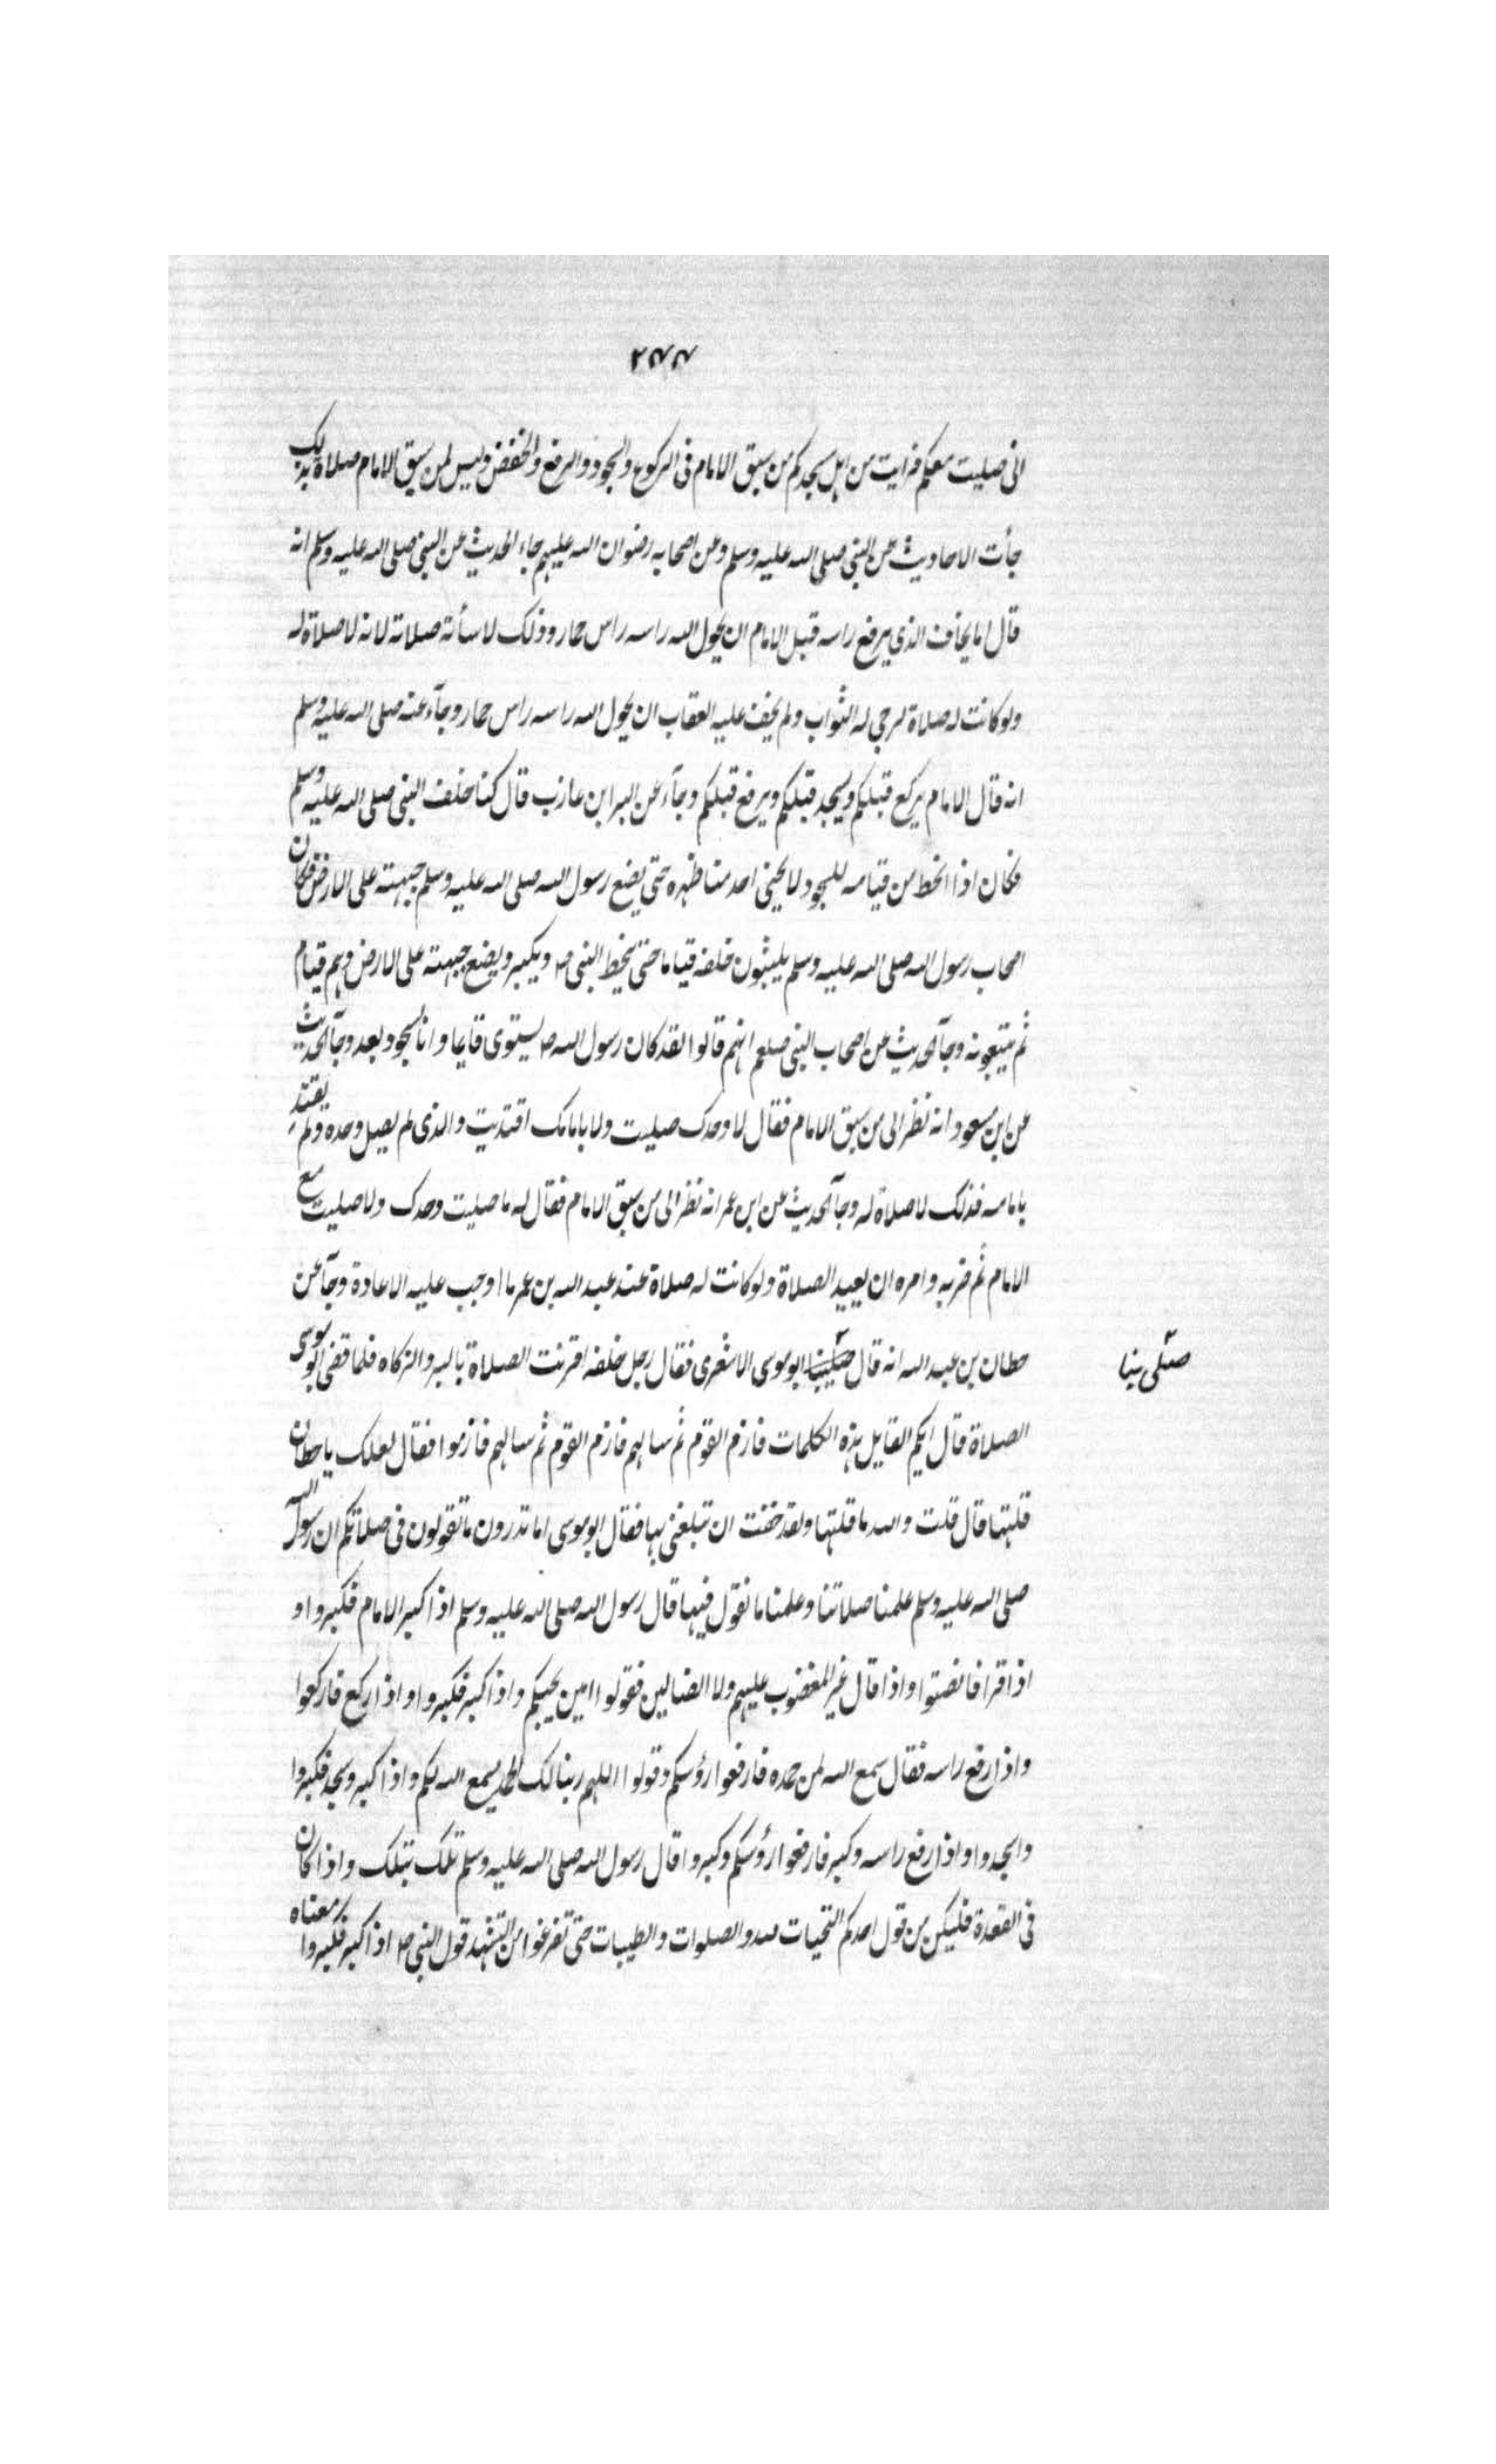 ٢٧٧
انى صليت معكم فرايت من اهل مسجدكم من سبق الامام فى الركوع والسجود والرفع والخفض وليس لمن سبق الامام صلاة بذلك
جأت الاحاديث عن النبى صلى الله عليه وسلم وعن اصحابه رضوان الله عليهم جاء الحديث عن النبى صلى الله عليه وسلم انه
قال اما يخاف الذى يرفع راسه قبل الامام ان يحول الله راسه راس حمار وذلك لاسأته صلاته لانه لا صلاة له
ولو كانت له صلاة لرجى له الثواب ولم يخف عليه العقاب ان يحول الله راسه راس حمار وجآء عنه صلى الله عليه وسلم
انه قال الامام يركع قبلكم ويسجد قبلكم ويرفع قبلكم وجآء عن البرا بن عازب قال كنا خلف النبى صلى الله عليه وسلم
فكان اذا انحط من قيامه للسجود لا يحنى احد منا ظهره حتى يضع رسول الله صلى الله عليه وسلم جبهته على الارض فكان
اصحاب رسول الله صلى الله عليه وسلم يلبثون خلفه قياما حتى ينحط النبى ص ويكبر ويضع جبهته على الارض وهم قيام
ثم يتبعونه وجآ الحديث عن اصحاب النبى صلعم انهم قالوا لقد كان رسول الله ص يستوى قايما وانا لسجود بعد وجآ الحديث
عن ابن مسعود انه نظر الى من سبق الامام فقال لا وحدك صليت ولا بامامك اقتديت والذى لم يصل وحده ولم يقتد
بامامه فذلك لا صلاة له وجآ الحديث عن ابن عمر انه نظر الى من سبق الامام فقال له ما صليت وحدك ولا صليت مع
الامام ثم ضربه وامره ان يعيد الصلاة ولو كانت له صلاة عند عبد الله بن عمر ما اوجب عليه الاعادة وجآ عن
حطان بن عبد الله انه قال صلينا ابو موسى الاشعرى فقال رجل خلفه اقرنت الصلاة بالبر والزكاه فلما قضى ابو موسى
صلى بنا
الصلاة قال ايكم القايل هذه الكلمات فارم القوم ثم سالهم فارم القوم ثم سالهم فارموا فقال لعلك يا حطان
قلتها قال قلت والله ما قلتها ولقد خفت ان تبلغنى بها فقال ابو موسى اما تدرون ما تقولون فى صلاتكم ان رسول الله
صلى الله عليه وسلم علمنا صلاتنا وعلمنا ما نقول فيها قال رسول الله صلى الله عليه وسلم اذا كبر الامام فكبروا و
اذا قرا فانصتوا واذا قال غير المغضوب عليهم ولا الضالين فقولوا امين يحبكم واذا كبر فكبروا واذا ركع فاركعوا
واذا رفع راسه فقال سمع الله لمن حمده فارفعوا رؤسكم وقولوا اللهم ربنا لك الحمد يسمع الله لكم واذا كبر وسجد فكبروا
واسجدوا واذا رفع راسه وكبر فارفعوا رؤسكم وكبروا قال رسول الله صلى الله عليه وسلم تلك بتلك واذا كان
فى القعدة فليكن من قول احدكم التحيات لله والصلوات والطيبات حتى تفرغوا من التشهد قول النبى ص اذا كبر فكبروا معناه